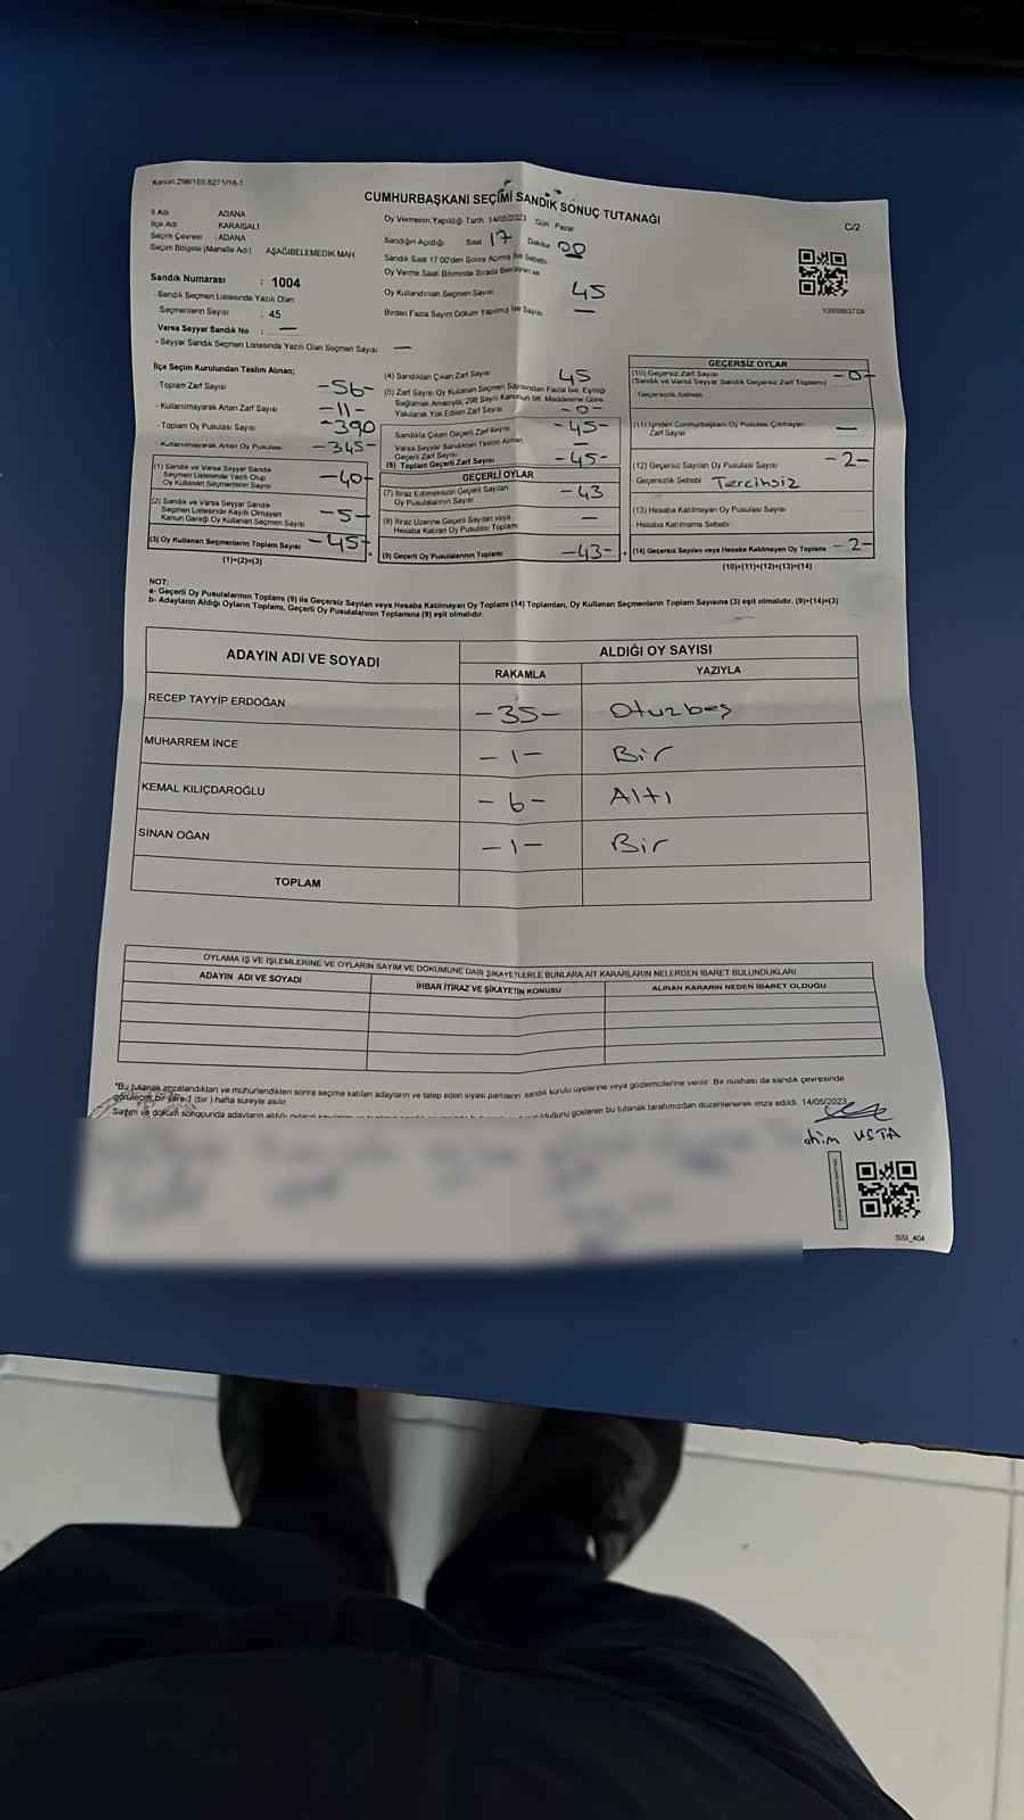 Kanun 298/105,6271/18-1
CUMHURBAŞKANI SEÇİMİ SANDIK SONUÇ TUTANAĞI
C/2
İl Adı : ADANA
İlçe Adı : KARAİSALI
Seçim Çevresi : ADANA
Seçim Bölgesi (Mahalle Adı) : AŞAĞIBELEMEDİK MAH
Sandık Numarası : 1004
Sandık Seçmen Listesinde Yazılı Olan
Seçmenlerin Sayısı : 45
Varsa Seyyar Sandık No : —
- Seyyar Sandık Seçmen Listesinde Yazılı Olan Seçmen Sayısı —
Oy Vermenin Yapıldığı Tarih 14/05/2023 Gün Pazar
Sandığın Açıldığı Saat 17 Dakika 00
Sandık Saat 17:00'den Sonra Açılma İse Sebebi
Oy Verme Saati Bitiminde Sırada
Oy Kullandırılan Seçmen Sayısı 45
Birden Fazla Sayım Döküm Yapılmış İse Sayısı —
İlçe Seçim Kurulundan Teslim Alınan;
Toplam Zarf Sayısı -56-
- Kullanılmayarak Artan Zarf Sayısı -11-
- Toplam Oy Pusulası Sayısı -390
- Kullanılmayarak Artan Oy Pusulası -345-
(1) Sandık ve Varsa Seyyar Sandık
Seçmen Listesinde Yazılı Olup
Oy Kullanan Seçmenlerin Sayısı -40-
(2) Sandık ve Varsa Seyyar Sandık
Seçmen Listesinde Kayıtlı Olmayan
Kanun Gereği Oy Kullanan Seçmen Sayısı -5-
(3) Oy Kullanan Seçmenlerin Toplam Sayısı -45-
(1)+(2)=(3)
(4) Sandıktan Çıkan Zarf Sayısı 45
(5) Zarf Sayısı Oy Kullanan Seçmen Sayısından Fazla İse, Eşitliği
Sağlamak Amacıyla; 298 Sayılı Kanun'un 98. Maddesine Göre
Yakılarak Yok Edilen Zarf Sayısı -0-
Sandıkta Çıkan Geçerli Zarf Sayısı -45-
Varsa Seyyar Sandıktan Teslim Alınan
Geçerli Zarf Sayısı —
(6) Toplam Geçerli Zarf Sayısı -45-
GEÇERLİ OYLAR
(7) İtiraz Edilmeksizin Geçerli Sayılan
Oy Pusulalarının Sayısı -43
(8) İtiraz Üzerine Geçerli Sayılan veya
Hesaba Katılan Oy Pusulası Toplamı —
(9) Geçerli Oy Pusulalarının Toplamı -43-
GEÇERSİZ OYLAR
(10) Geçersiz Zarf Sayısı -0-
(Sandık ve Varsa Seyyar Sandık Geçersiz Zarf Toplamı)
Geçersizlik Sebebi
(11) İçinden Cumhurbaşkanı Oy Pusulası Çıkmayan
Zarf Sayısı —
(12) Geçersiz Sayılan Oy Pusulası Sayısı -2-
Geçersizlik Sebebi Tercihsiz
(13) Hesaba Katılmayan Oy Pusulası Sayısı
Hesaba Katılmama Sebebi
(14) Geçersiz Sayılan veya Hesaba Katılmayan Oy Toplamı -2-
(10)+(11)+(12)+(13)=(14)
NOT:
a- Geçerli Oy Pusulalarının Toplamı (9) ile Geçersiz Sayılan veya Hesaba Katılmayan Oy Toplamı (14) Toplamları, Oy Kullanan Seçmenlerin Toplam Sayısına (3) eşit olmalıdır. (9)+(14)=(3)
b- Adayların Aldığı Oyların Toplamı, Geçerli Oy Pusulalarının Toplamına (9) eşit olmalıdır.
ADAYIN ADI VE SOYADI
ALDIĞI OY SAYISI
RAKAMLA YAZIYLA
RECEP TAYYİP ERDOĞAN -35- Otuzbeş
MUHARREM İNCE -1- Bir
KEMAL KILIÇDAROĞLU -6- Altı
SİNAN OĞAN -1- Bir
TOPLAM
OYLAMA İŞ VE İŞLEMLERİNE VE OYLARIN SAYIM VE DÖKÜMÜNE DAİR ŞİKAYETLERLE BUNLARA AİT KARARLARIN NELERDEN İBARET BULUNDUKLARI
ADAYIN ADI VE SOYADI İHBAR İTİRAZ VE ŞİKAYETİN KONUSU ALINAN KARARIN NEDEN İBARET OLDUĞU
*Bu tutanak imzalandıktan ve mühürlendikten sonra seçime katılan adayların ve talep eden siyasi partilerin sandık kurulu üyelerine veya gözlemcilerine verilir. Bir nüshası da sandık çevresinde
görülecek bir yere 1 (bir) hafta süreyle asılır.
Sayım ve döküm sonucunda adayların aldığı
olduğunu gösteren bu tutanak tarafımızdan düzenlenerek imza edildi. 14/05/2023
USTA